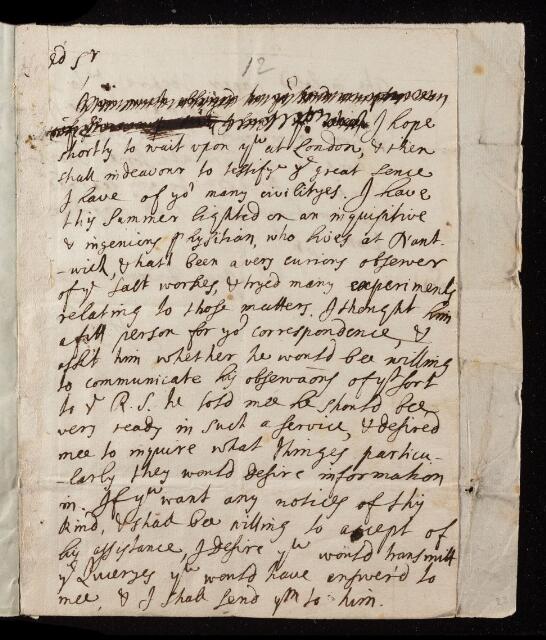 ed Sr
12
I hope
shortly to wait upon yu at London, & then
shall indeavour to testify ye great sence
I have of yor many civilityes. I have
this Summer lighted on an inquisitive
& ingenious Physitian, who lives at Nant
-wich, & hath been a very curious observer
of ye salt workes, & tryed many experiments
relating to those matters. I thought him
a fitt person for yor correspondence, &
askt him whether he would bee willing
to communicate his observaons of yt sort
to ye R. S. he told mee he should bee
very ready in such a service, & desired
mee to inquire what things particu-
-larly they would desire information
in. If yu want any notices of this
kind, & shall bee willing to accept of
his assistance, I desire yu would transmitt
ye Queryes yu would have answer'd to
mee, & I shall send ym to him.